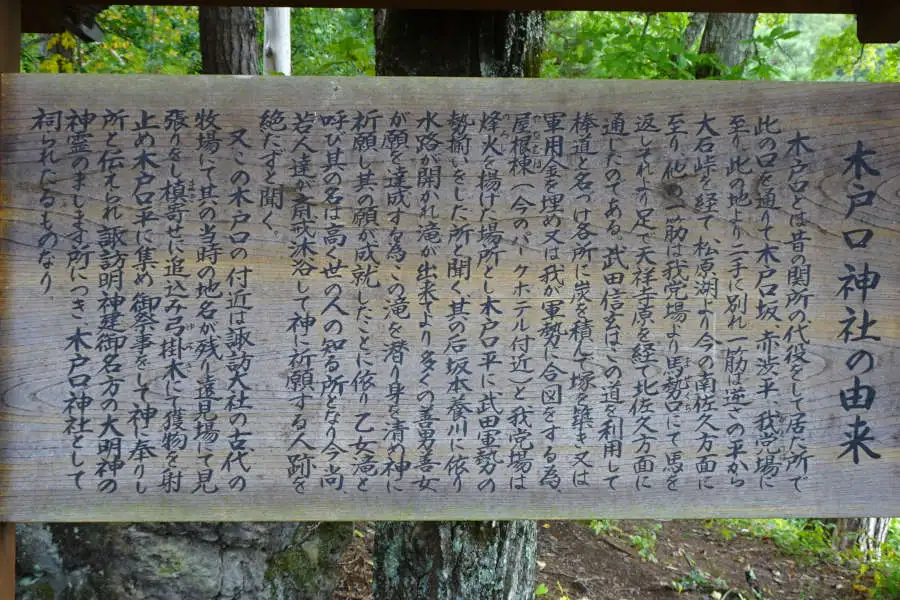 木戸口神社の由来
木戸口とは昔の関所の代役をして居た所で
此の口を通りて木戸坂、赤渋平、我党場に
至り、此の地より二手に別れ一筋は逆さの平から
大石峠を経て、松原湖より今の南佐久方面に
至り、他の一筋は我党場より馬勢口にて馬を
返しそれより足で天祥寺原を経て北佐久方面に
通じたのである、武田信玄はこの道を利用して
棒道と名づけ各所に炭を積んで塚を築き又は
軍用金を埋め又は我が軍勢に合図をする為、
屋根棟（今のパークホテル付近）と我党場は
烽火を揚げた場所とし木戸口平に武田軍勢の
勢揃いをした所と聞く、其の后坂本養川に依り
水路が開かれ滝が出来より多くの善男善女
が願を達成する為この滝を潜り身を清め神に
祈願し其の願が成就したことに依り乙女滝と
呼び其の名は高く世の人の知る所となり今尚、
若人達が斎戒沐浴して神に祈願する人跡を
絶たずと聞く
又この木戸口の付近は諏訪大社の古代の
牧場にて其の当時の地名が残り遠見場にて見
張りをし槙寄せに追込み弓掛木にて獲物を射
止め木戸口平に集め御祭事をして神に奉りし
所と伝えられ諏訪明神建御名方の大明神の
神霊のまします所につき、木戸口神社として
祠られたるものなり、